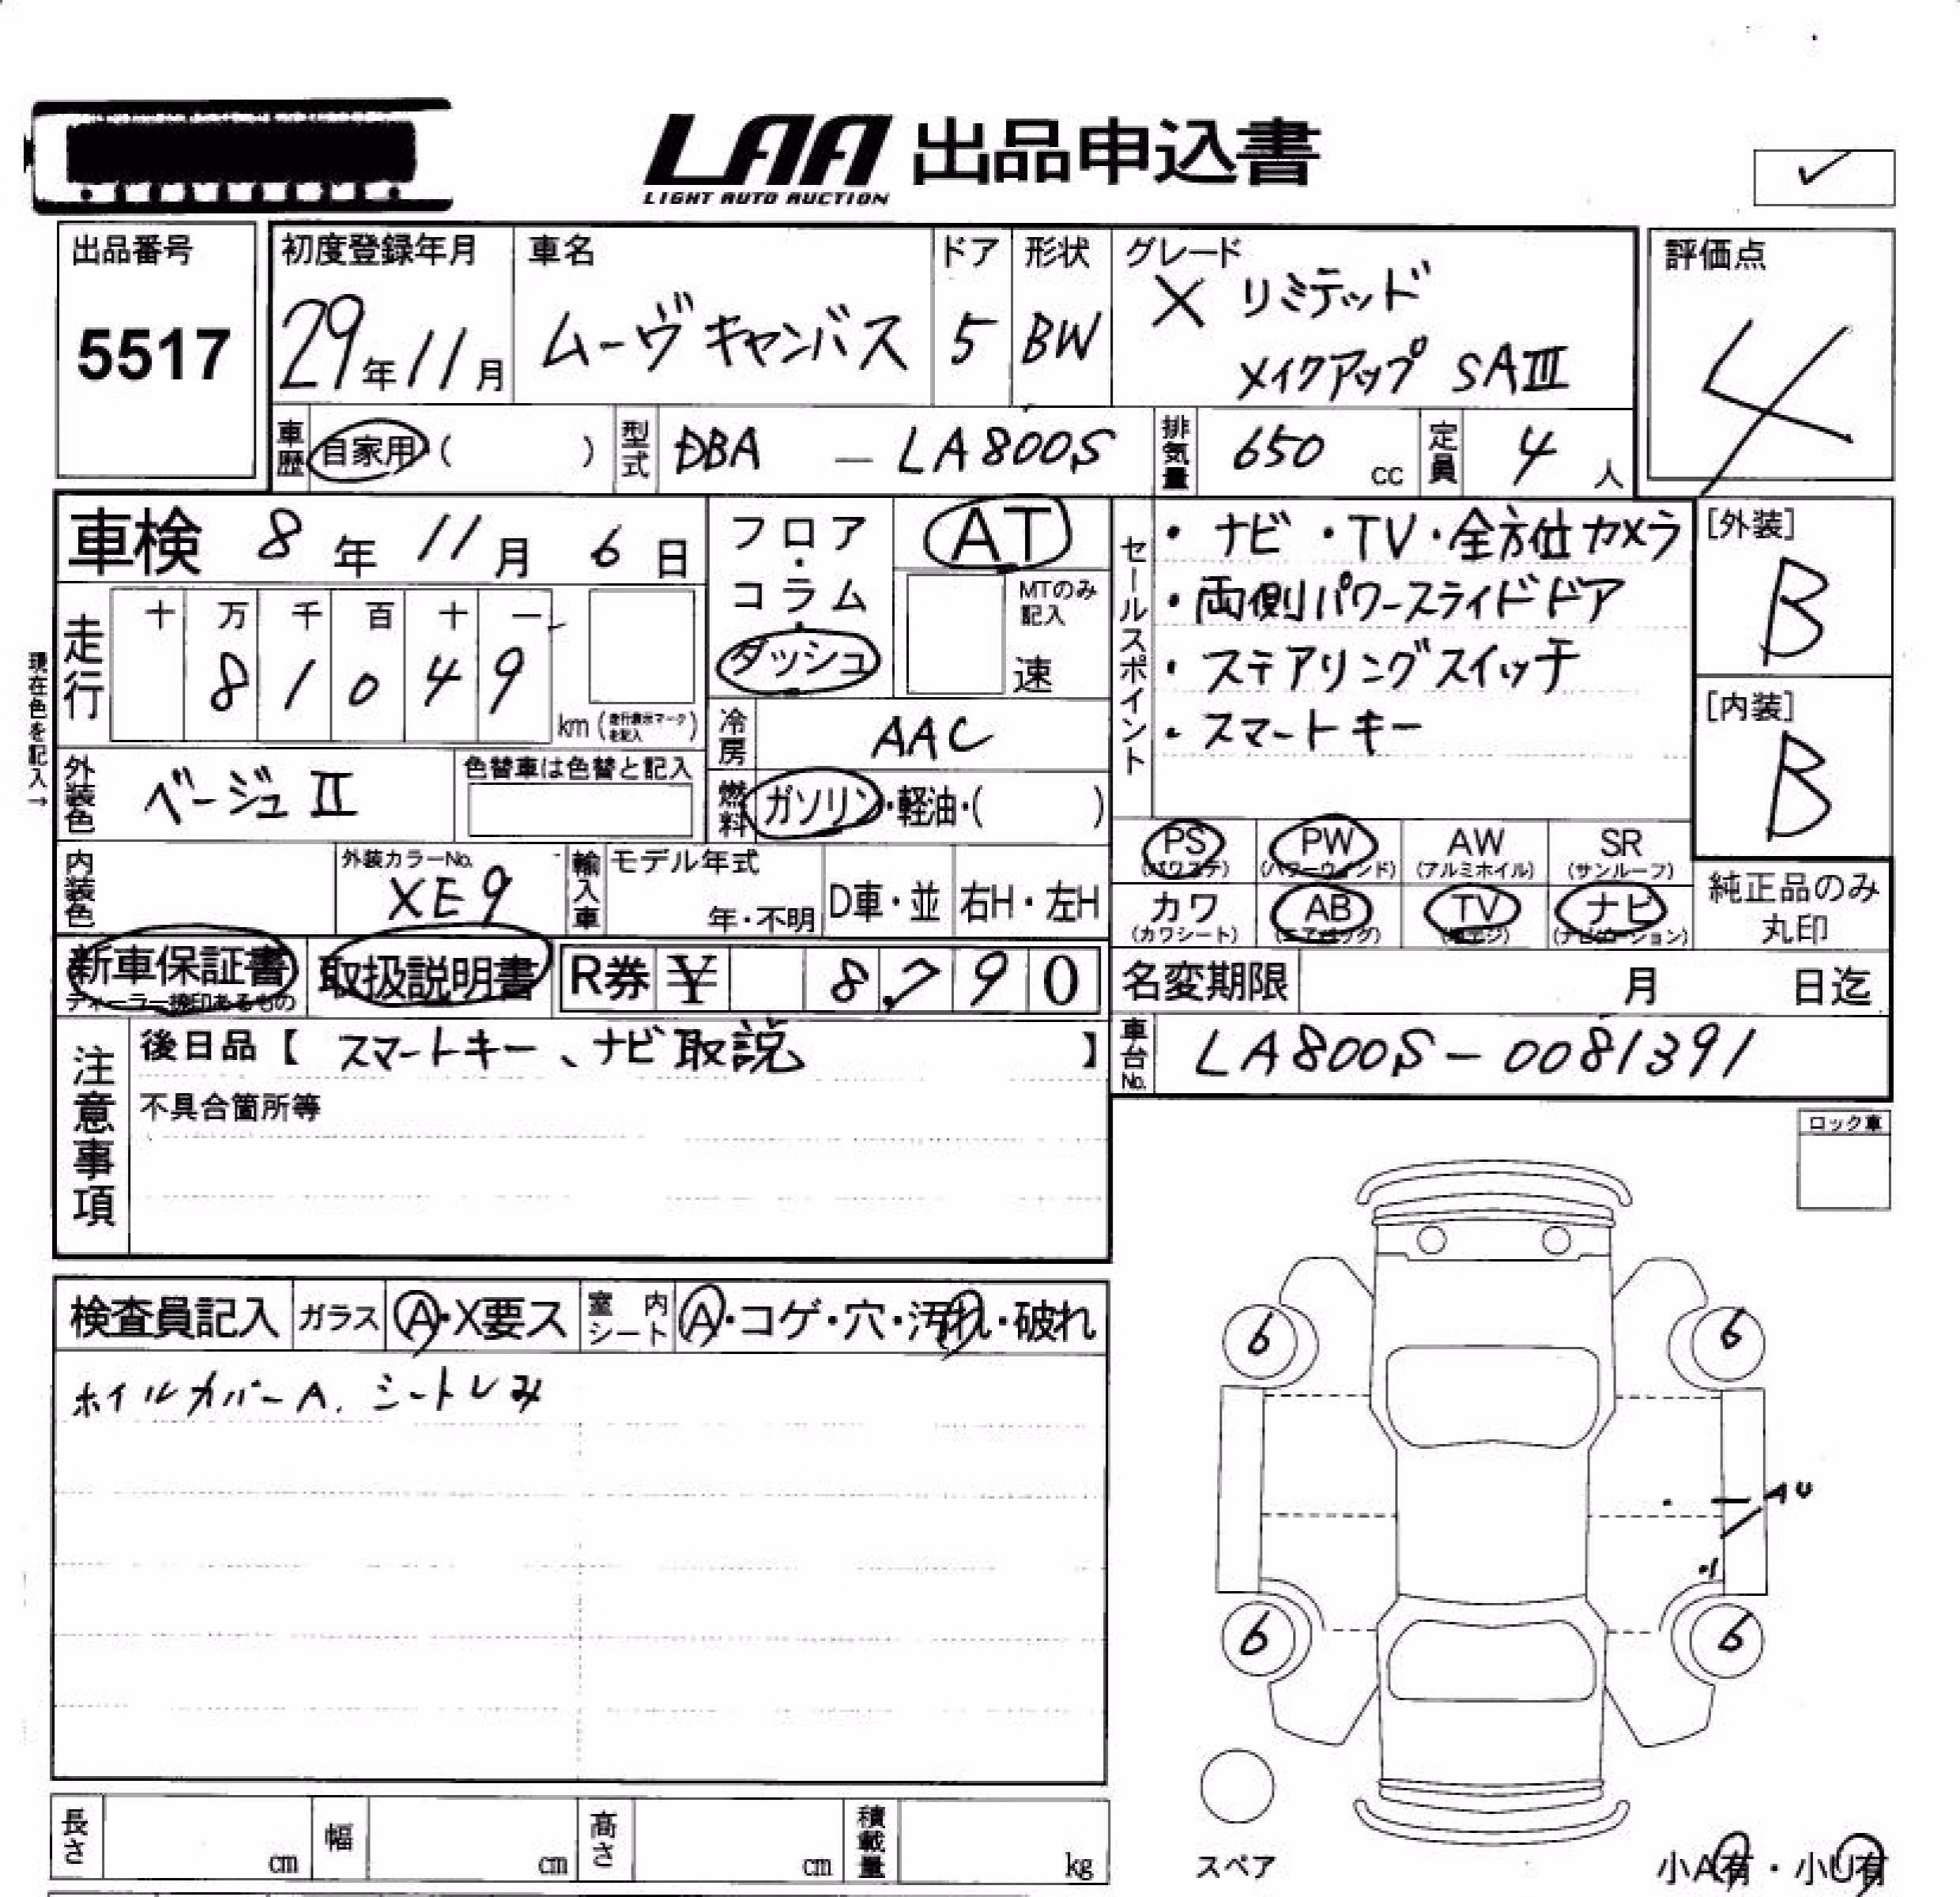 LAA 出品申込書
LIGHT AUTO AUCTION
出品番号
5517
初度登録年月
29年11月
車名
ムーヴキャンバス
ドア
5
形状
BW
グレード
X リミテッド
メイクアップ SAⅢ
評価点
4
車歴 自家用 ( )
型式 DBA — LA800S
排気量 650 cc
定員 4 人
車検 8年 11月 6日
現在色を記入→
走行
十 万 千 百 十 一
8 1 0 4 9
km (走行表示マークを記入)
フロア・コラム・ダッシュ
AT
MTのみ記入
速
冷房 AAC
燃料 ガソリン・軽油・( )
外装色 ベージュⅡ
色替車は色替と記入
内装色
外装カラーNo.
XE9
輸入車
モデル年式
年・不明
D車・並
右H・左H
セールスポイント
・ナビ ・TV・全方位カメラ
・両側パワースライドドア
・ステアリングスイッチ
・スマートキー
[外装]
B
[内装]
B
PS (パワステ)
PW (パワーウィンド)
AW (アルミホイル)
SR (サンルーフ)
カワ (カワシート)
AB (エアバッグ)
TV (地デジ)
ナビ (ナビゲーション)
純正品のみ
丸印
新車保証書
ディーラー捺印あるもの
取扱説明書
R券 ¥ 8,790
名変期限 月 日迄
車台No. LA800S-0081391
注意事項
後日品【 スマートキー、ナビ取説 】
不具合箇所等
ロック車
検査員記入
ガラス A・X要ス
室内シート A・コゲ・穴・汚れ・破れ
ホイルカバーA. シートしみ
6
6
AU
6
6
スペア
小A有・小U有
長さ cm
幅 cm
高さ cm
積載量 kg